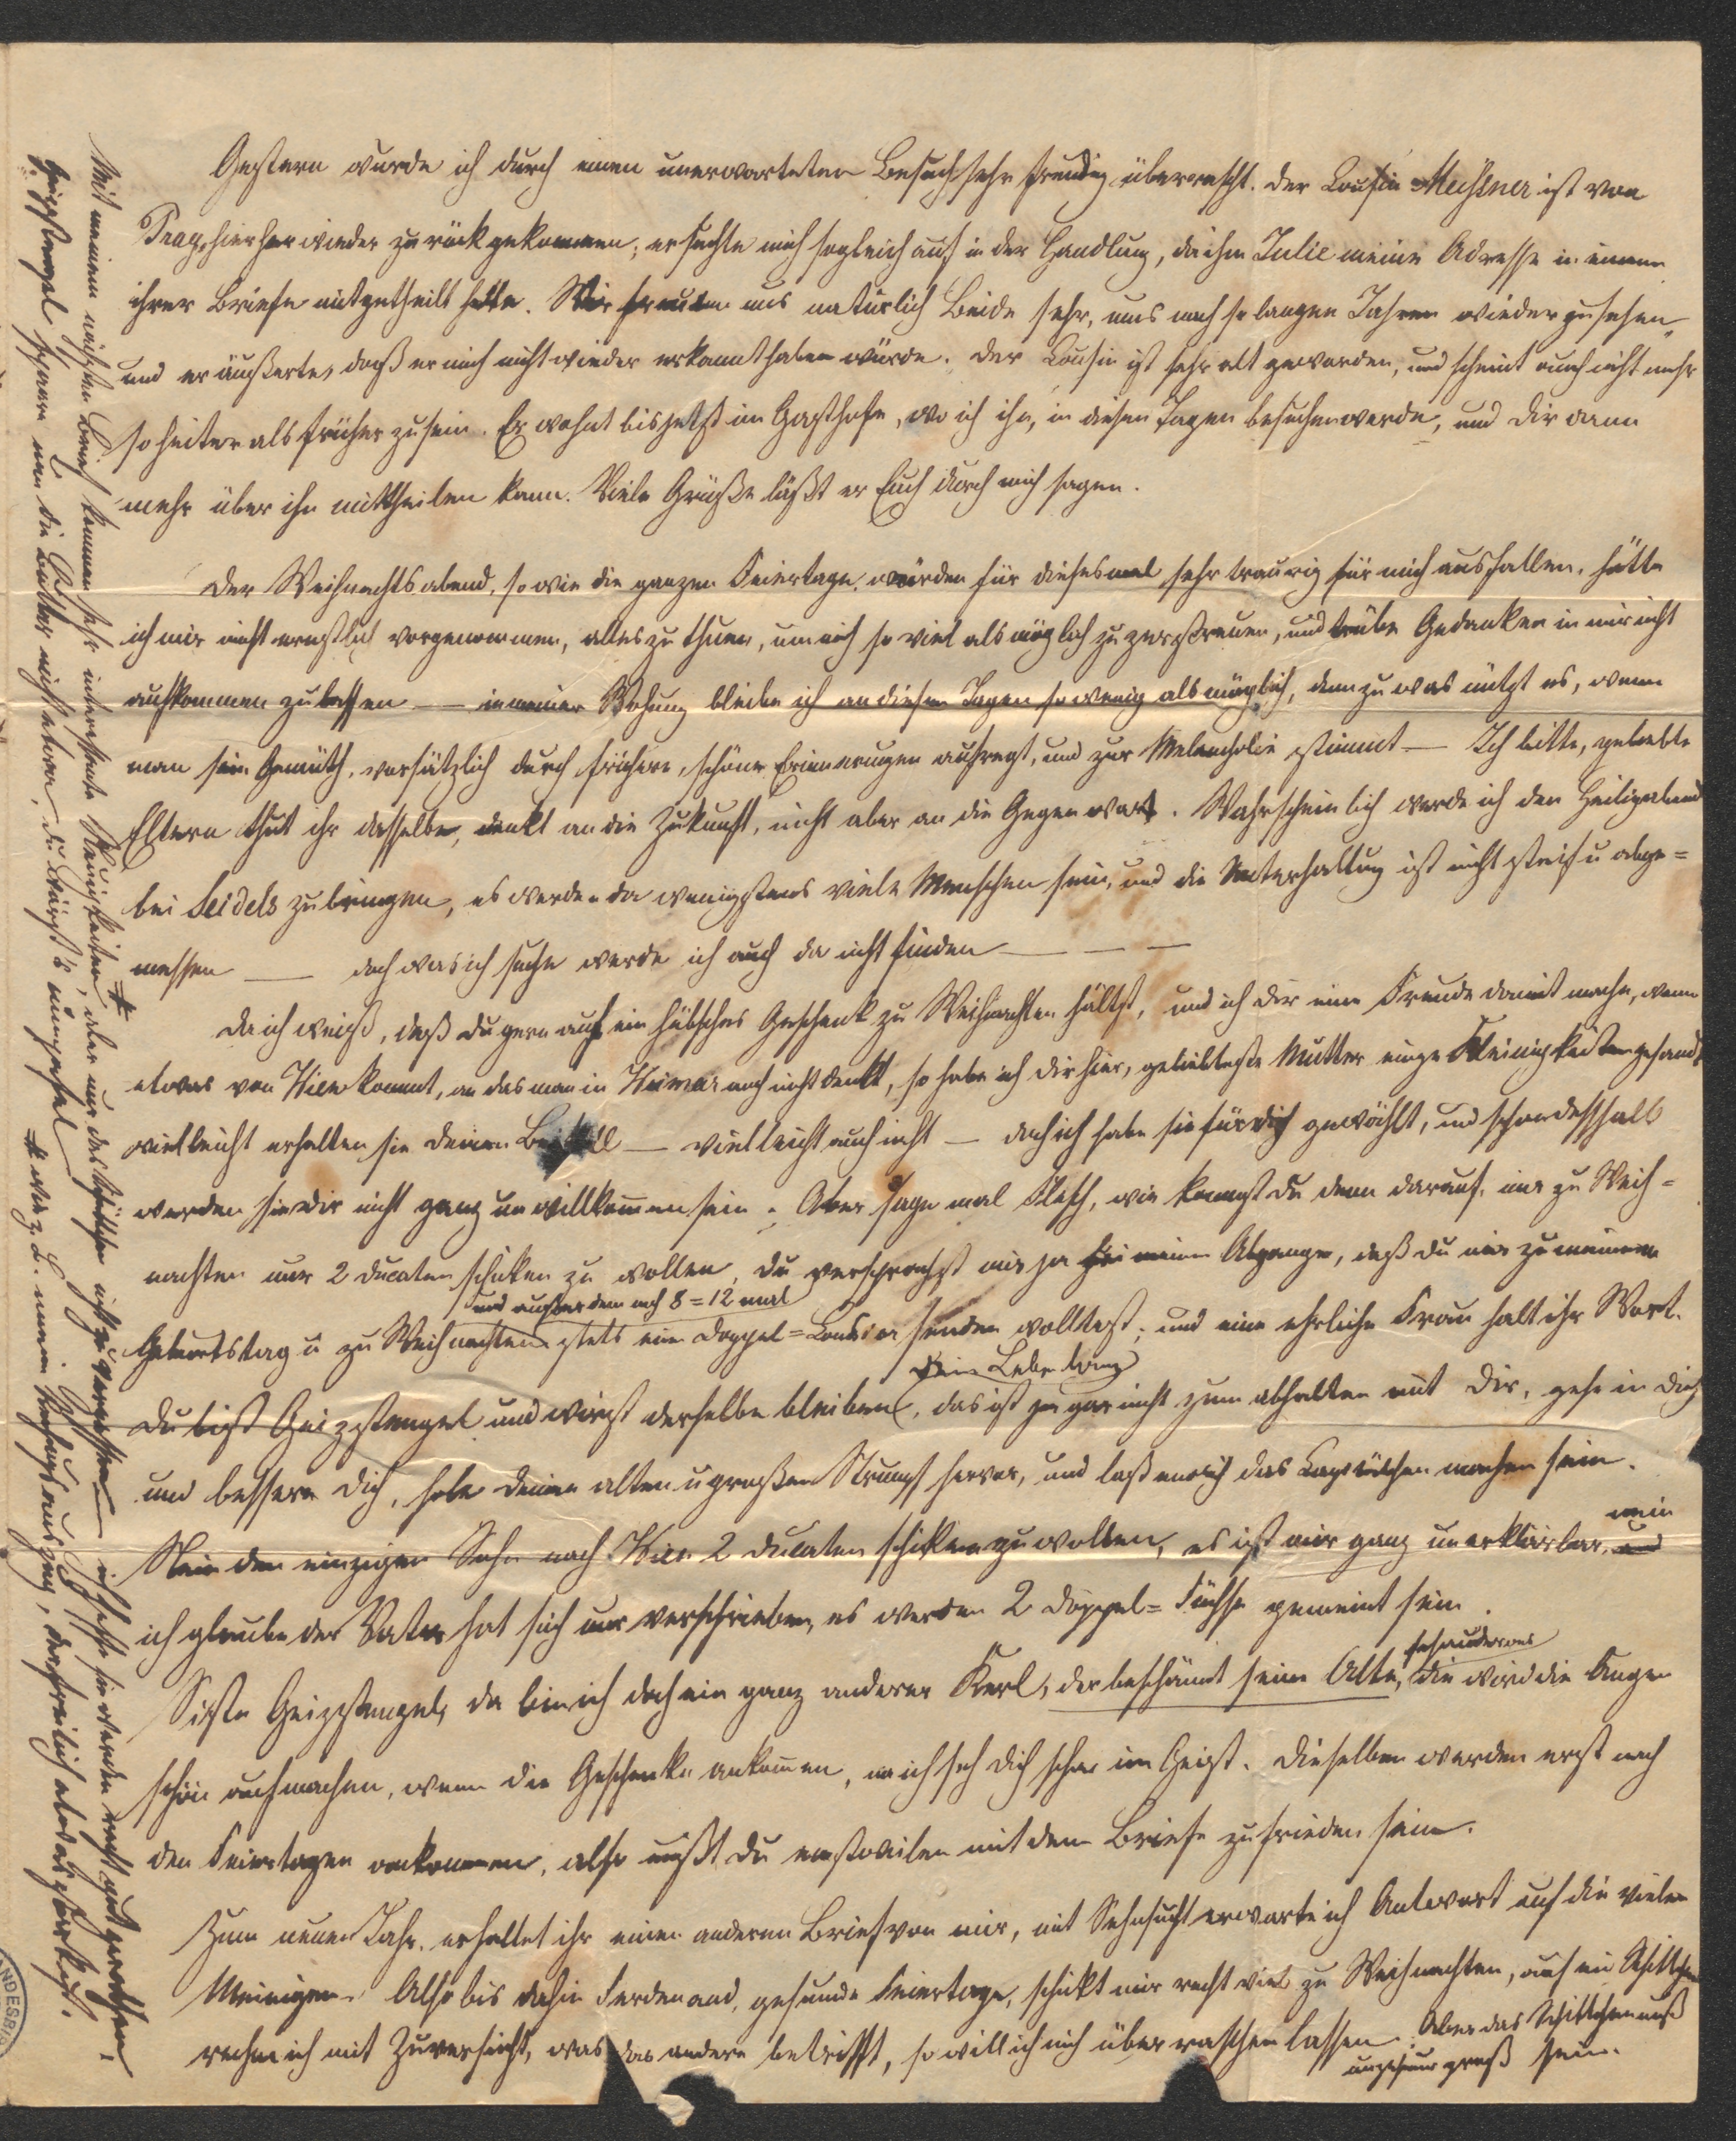 Gestern wurde ich durch einen unerwarteten Besuch sehr freudig überrascht. Der Cousin Meißner ist von
Prag, hierher wieder zurückgekommen; er suchte mich sogleich auf in der Handlung, da ihm Julie meine Adresse in einem
ihrer Briefe mitgetheilt hatte. Wir freuten uns natürlich Beide sehr, uns nach so langen Jahren wiederzusehen,
und er äußerte, daß er mich nicht wieder erkannt haben würde. Der Cousin ist sehr alt geworden, und scheint auch nicht mehr
so heiter als früher zu sein. Er wohnt bis jetzt im Gasthofe, wo ich ihn, in diesen Tagen besuchen werde, und dir dann
mehr über ihn mittheilen kann. Viele Grüße läßt er Euch durch mich sagen.
Der Weihnachtsabend, so wie die ganzen Feiertage, würden für diesesmal sehr traurig für mich ausfallen, hätte
ich mir nicht ernstlich vorgenommen, alles zu thuen, um mich so viel als möglich zu zerstreuen, und trübe Gedanken in mir nicht
aufkommen zu lassen — in meiner Wohnung bleibe ich an diesen Tagen so wenig als möglich, denn zu was nützt es, wenn
man sein Gemüth, vorsätzlich durch frühere, schöne Erinnerungen aufregt, und zur Melancholie stimmt — Ich bitte, geliebte
Eltern thut ihr dasselbe, denkt an die Zukunft, nicht aber an die Gegenwart. Wahrscheinlich werde ich den Heiligabend
bei Seidels zubringen, es werden da wenigstens viele Menschen sein, und die Unterhaltung ist nicht steif u abge=
messen — doch was ich suche werde ich auch da nicht finden — — —
Da ich weiß, daß du gern auf ein hübsches Geschenk zu Weihnachten hältst, und ich dir eine Freude damit mache, wenn
etwas von Wien kommt, an das man in Weimar noch nicht denkt, so habe ich dir hier, geliebteste Mutter einige Kleinigkeiten gesandt
vielleicht erhalten sie deinen Beifall — vielleicht auch nicht — doch ich habe sie für dich gewählt, und schon deßhalb
werden sie dir nicht ganz unwillkommen sein. Aber sage mal, wie kommst du denn darauf, mir zu Weih=
nachten nur 2 Ducaten schicken zu wollen, du versprachst mir ja bei meinem Abgange, daß du mir zu meinem
und außerdem noch 8=12 mal
Geburtstag u zu Weihnachten stets ein Doppel=Louisdor senden wolltest; und eine ehrliche Frau halt ihr Wort.
Dein Lebe lang
Du bist Geizstengel und wirst derselbe bleiben, das ist ja gar nicht zum abhalten mit dir, gehe in dich
und bessere dich, hole deinen alten u großen Strumpf hervor, und laß endlich das machen sein.
Nein dem einzigen Sohn nach Wien 2 Ducaten schicken zu wollen, es ist mir ganz unerklärbar, nein
ich glaube der Vater hat sich nur verschrieben, es werden 2 Doppel=Füchse gemeint sein.
Siehste Geizstengel, da bin ich doch ein ganz anderer Kerl, der beschämt seine Alte, die wird die Augen
schön aufmachen, wenn die Geschenke ankommen, na ich seh dich schon im Geist. Dieselben werden erst nach
den Feiertagen ankommen, also mußt du einstweilen mit dem Briefe zufrieden sein.
Zum neuen Jahr erhaltet ihr einen anderen Brief von mir, mit Sehnsucht erwarte ich Antwort auf die vielen
Meinigen. Also bis dahin gesunde Feiertage, schickt mir recht viel zu Weihnachten, auf ein Schittchen
rechne ich mit Zuversicht, was das andere betrifft, so will ich mich überraschen lassen. Aber das Schittchen muß
ungeheuer groß sein.
Mit meinem nächsten Brief kommen sehr interessante Neuigkeiten, aber nur das Schittchen nicht zu vergessen — ich hoffe sie werden recht gut gerathen.
Geizstengel spare nur die Butter nicht etwa, du wärst's im